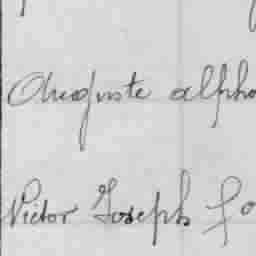 Auguste alpho
Victor Joseph fo